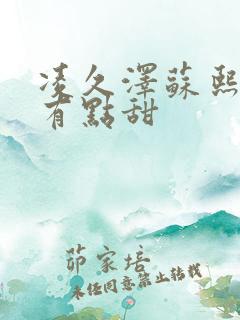 凌久澤蘇熙
有點甜
茆家培
未经同意禁止转载